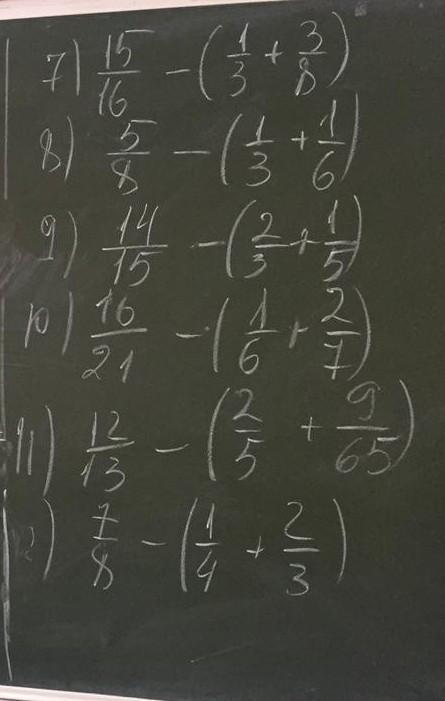 7) 15/16 - (1/3 + 3/8)
8) 5/8 - (1/3 + 1/6)
9) 14/15 - (2/3 + 1/5)
10) 16/21 - (1/6 + 2/7)
11) 12/13 - (2/5 + 9/65)
2) 7/8 - (1/4 + 2/3)